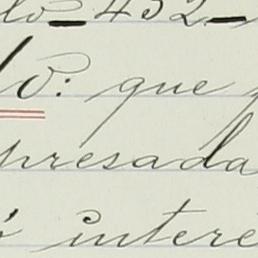 lo 432
lo: que
presada
ó interé